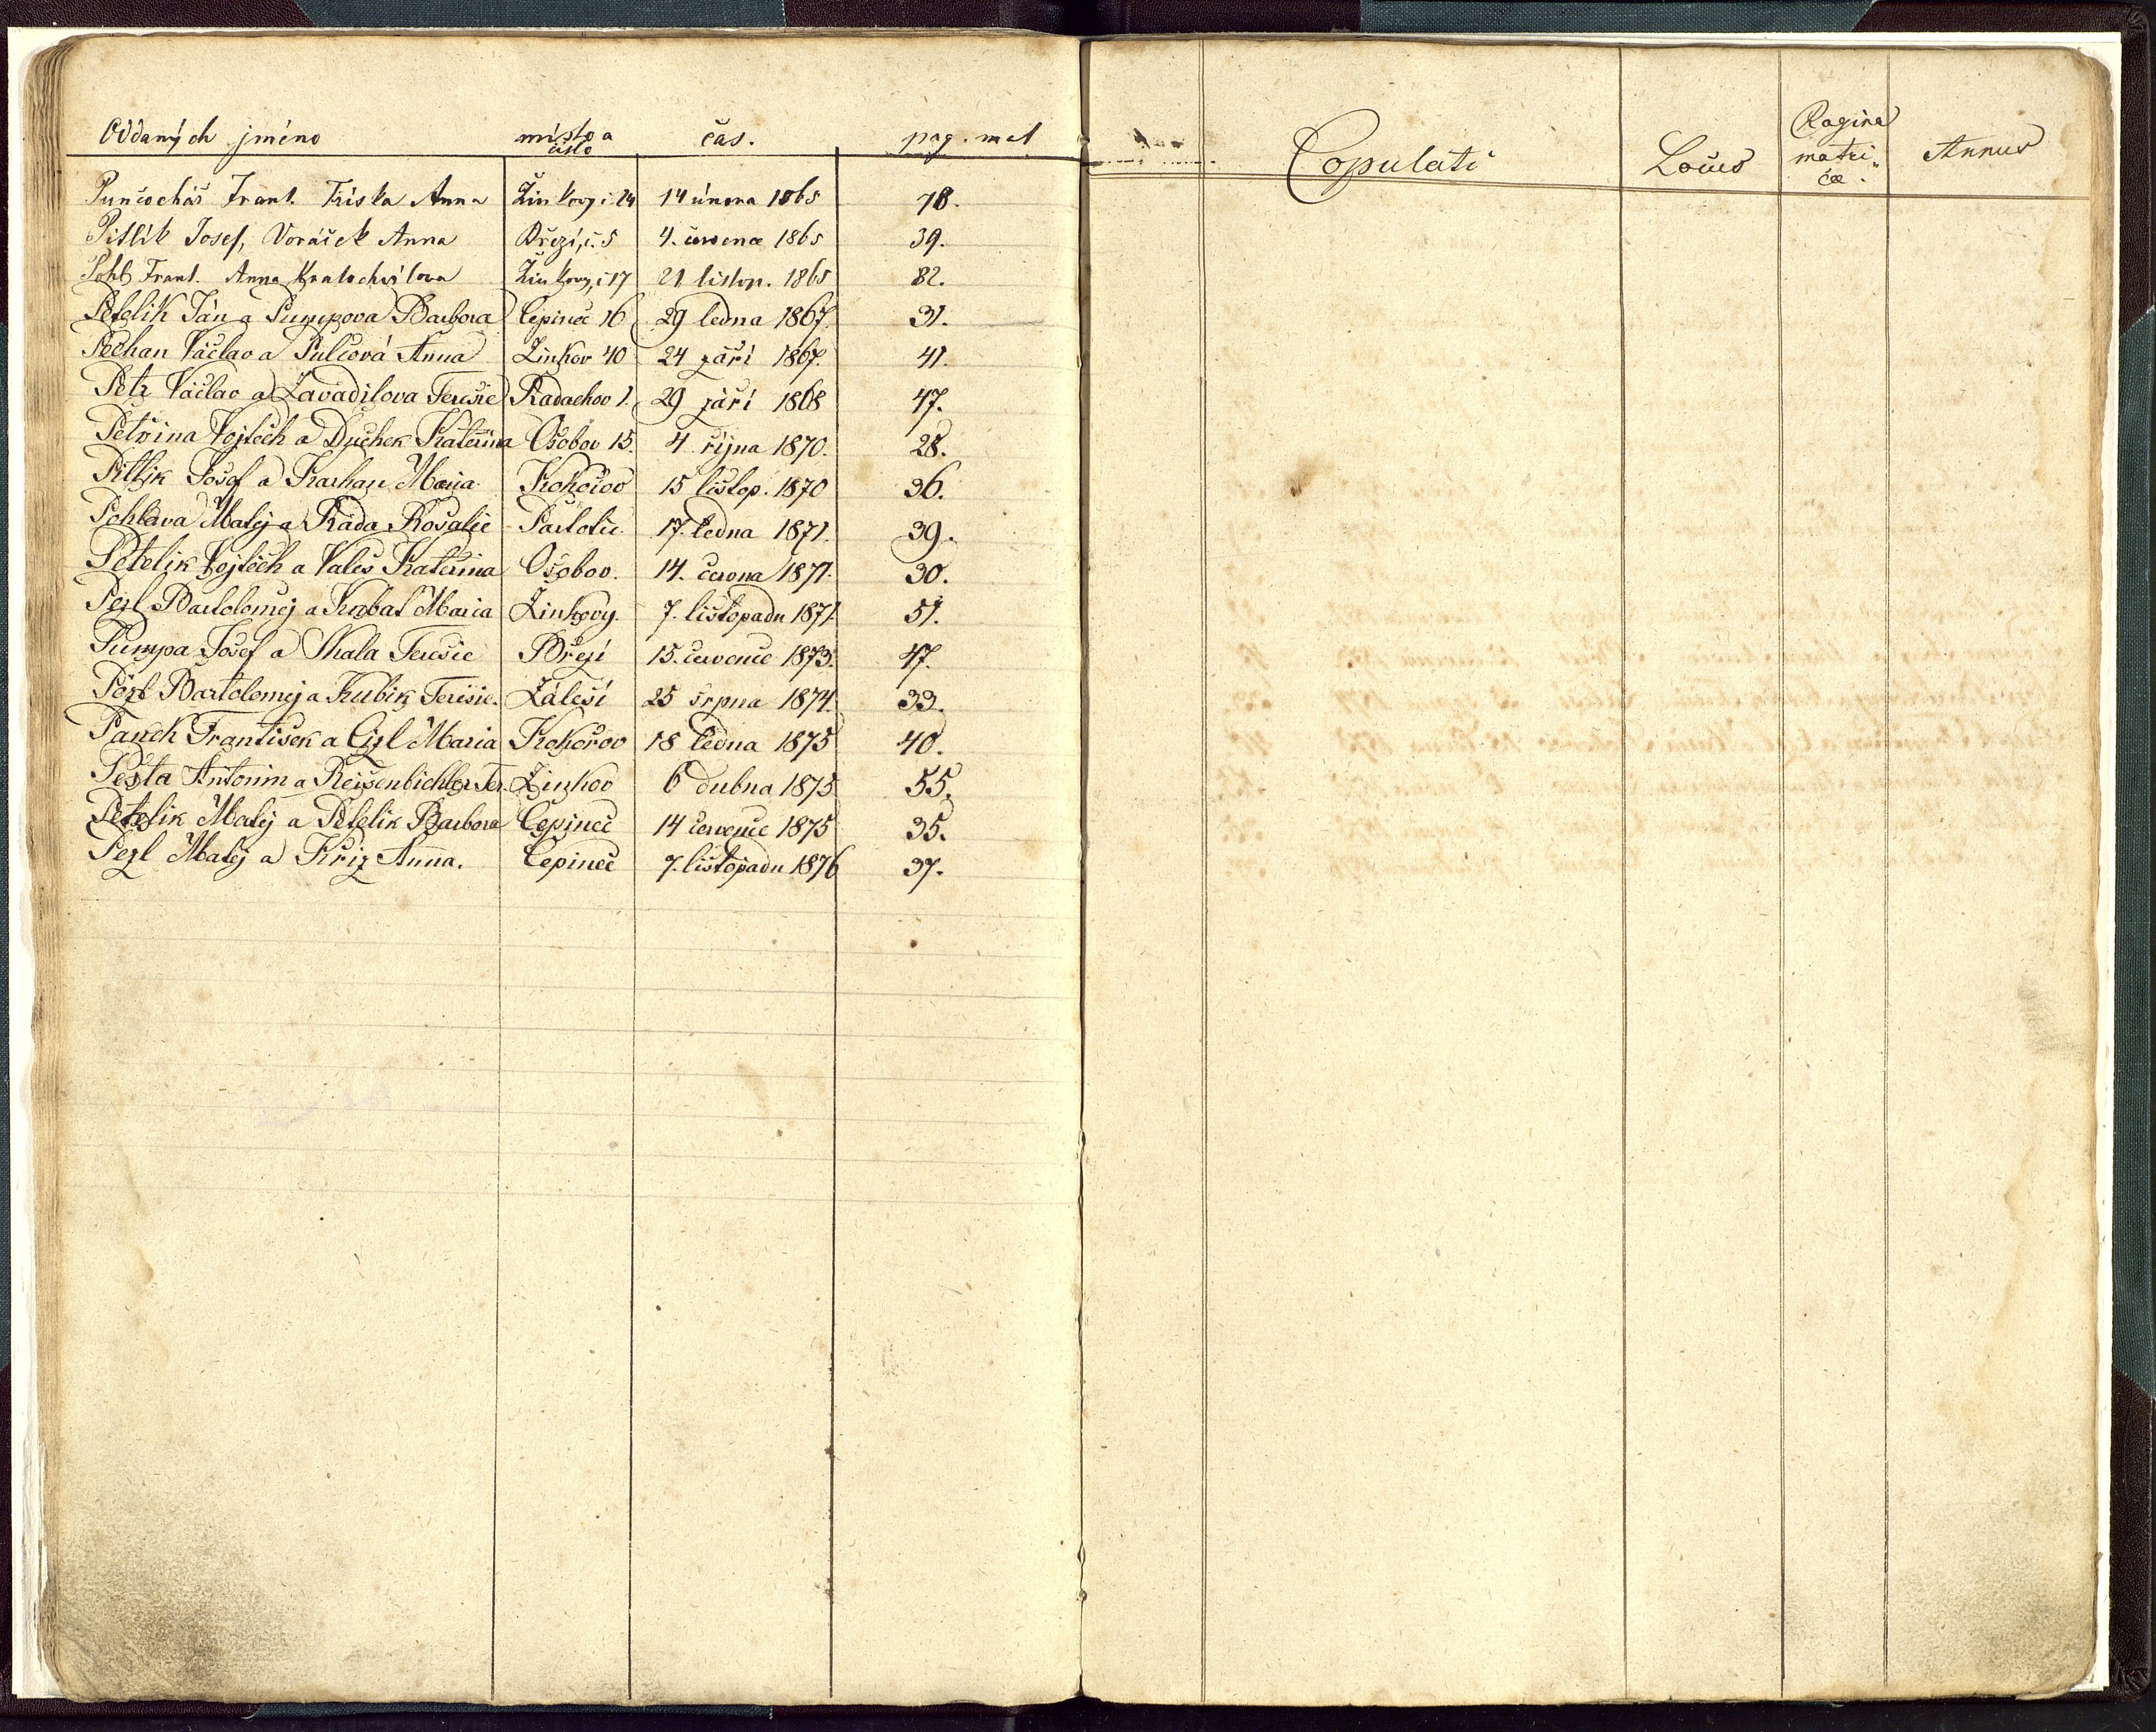 Oddaných jméno místo a číslo čas. pag. mat
Punčochář Frant. Tříska Anna Žinkovy č. 24 14 února 1865 78.
Pitlík Josef, Voráček Anna Březí, č. 5 4. července 1865 39.
Pohl Frant. Anna Kratochvílova Žinkovy, č 17 21 listop. 1865 82.
Petelik Ján a Pumpova Barbora Čepineč 16 29 ledna 1867. 31.
Pechan Václav a Pulcová Anna Žinkov 40 24 září 1867. 41.
Petz Václav a Zavadilova Teresie Radachov 1. 29 září 1868 47.
Petřina Vojtěch a Duchek Kateřina Osobov 15. 4 října 1870. 28.
Pitlik Josef a Karhan Maria Kokořov 15 listop. 1870 36.
Pohlava Matěj a Rada Rosalie Partotic. 17. ledna 1871. 39.
Petelik Vojtěch a Vales Kateřina Osobov. 14. června 1871. 30.
Pezl Bartoloměj a Krabat Maria Žinkovy. 7. listopadu 1871. 51.
Pumpa Josef a Skala Teresie Březí 15. července 1873. 47.
Pözl Bartoloměj a Kubik Teresie. Zálesí 25 srpna 1874. 33.
Panek František a Cizl Maria Kokořov 18 ledna 1875 40.
Pešta Antonin a Reisenbichler Ter. Žinkov 6 dubna 1875 55.
Petelik Matěj a Petelik Barbora Čepineč 14 července 1875 35.
Pezl Matěj a Křiz Anna. Čepineč 7. listopadu 1876 37.
Copulati Locus Pagina matricæ. Annus